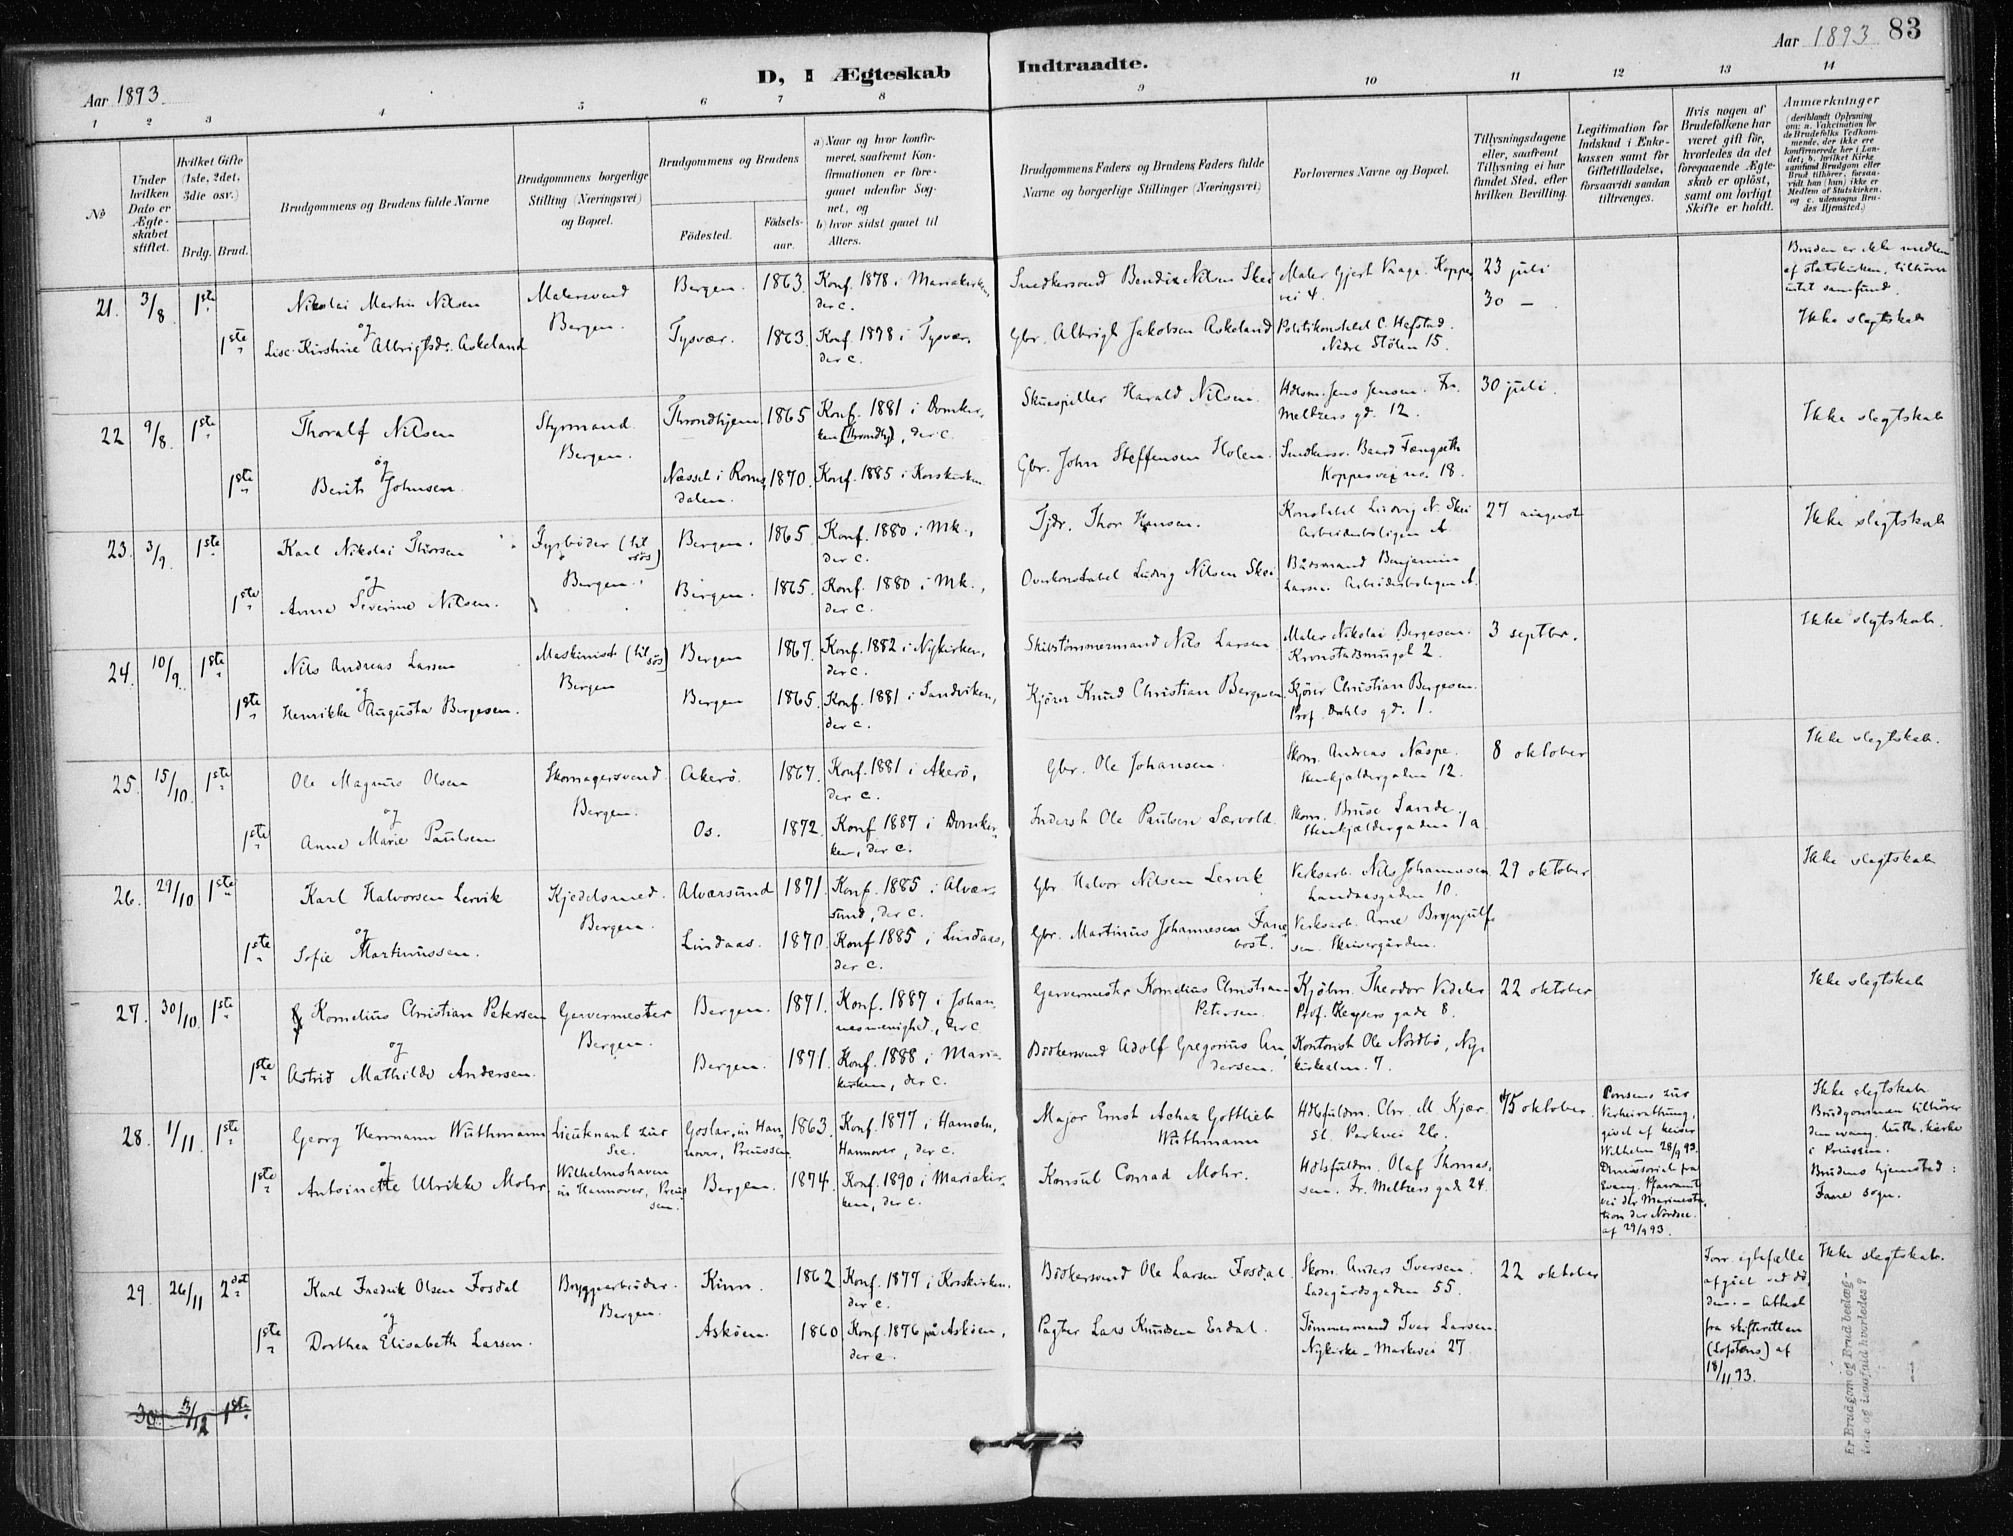 Aar 1893
D, I Ægteskab
Indtraadte.
Aar 1893 83
1 2 3 4 5 6 7 8 9 10 11 12 13 14
No
Under hvilken Dato er Ægteskabet stiftet.
Hvilket Gifte (1ste, 2det, 3die osv.)
Brdg. Brud.
Brudgommens og Brudens fulde Navne
Brudgommens borgerlige Stilling (Næringsvei) og Bopæl.
Brudgommens og Brudens
Fødested. Fødsels-aar.
a) Naar og hvor konfirmeret, saafremt Konfirmationen er foregaaet udenfor Sognet, og
b) hvor sidst gaaet til Alters.
Brudgommens Faders og Brudens Faders fulde Navne og borgerlige Stillinger (Næringsvei)
Forlovernes Navne og Bopæl.
Tillysningsdagene eller, saafremt Tillysning ei har fundet Sted, efter hvilken Bevilling.
Legitimation for Indskud i Enkekassen samt for Giftetilladelse, forsaavidt saadan tiltrænges.
Hvis nogen af Brudefolkene har været gift før, hvorledes da det foregaaende Ægteskab er opløst, samt om lovligt Skifte er holdt.
Anmærkninger
(deriblandt Oplysning om: a. Vakcination for de Brudefolks Vedkommende, der ikke ere konfirmerede her i Landet; b. hvilket Kirkesamfund Brudgom eller Brud tilhører, forsaavidt han (hun) ikke er Medlem af Statskirken, og c. udensogns Brudes Hjemsted.)
21. 3/8 1ste Nikolai Martin Nilsen Malersvend Bergen. Bergen. 1863. Konf. 1878 i Mariakirken, der c. Smedkersvend Bendix Nilsen Skei Maler Gjert Vaage. Koppevei 4. 23 juli 30 — Bruden er ikke medlem af statskirken, tilhører intet samfund.
og
1ste Lise Kirstine Albrigtsdr. Askeland Tysvær. 1863. Konf. 1878 i Tysvær, der c. Gbr. Albrigt Jakobsen Askeland Politikonstabel C. Hafstad. Nedre Stølen 15. Ikke slegtskab
22 9/8. 1ste Thoralf Nilsen Styrmand. Bergen. Throndhjem 1865 Konf. 1881 i Domkirken (Throndhj), der c. Skuespiller Harald Nilsen. Hdlsm. Jens Jensen. Fr. Meltzers gd. 12. 30 juli. Ikke slegtskab
og
1ste Berit Johnsen. Næsset i Romsdalen. 1870. Konf. 1885 i Korskirken Gbr. John Steffensen Holen. Smedkersv. Baard Fængseth Koppevei no. 18.
23. 3/9. 1ste Karl Nikolai Thorsen Fyrbøder (til søs) Bergen. Bergen. 1865. Konf. 1880 i Mk., der c. Tjdr. Thor Hansen. Konstabel Ludvig N. Skei Arbeiderboligen A. 27 august Ikke slegtskab
og
1ste Anne Severine Nilsen. Bergen. 1865. Konf. 1880 i Mk., der c. Overkonstabel Ludvig Nilsen Skei Bådsmand Benjamin Larsen. Arbeiderboligen A.
24. 10/9. 1ste Nils Andreas Larsen Maskinist (til søs) Bergen Bergen 1867. Konf. 1882 i Nykirken, der c. Skibstømmermand Nils Larsen Maler Nikolai Bergesen. Kronstadsmuget 2. 3 septbr. Ikke slegtskab.
og
1ste Henrikke Augusta Bergesen. Bergen 1865. Konf. 1881 i Sandviken, der c. Kjører Knud Christian Bergesen Kjører Christian Bergesen. Prof. Dahls gd. 1.
25. 15/10. 1ste Ole Magnus Olsen Skomagersvend Bergen. Akerø. 1867. Konf. 1881 i Akerø, der c. Gbr. Ole Johansen. Skom. Andreas Næspe. Stenkjældergaden 12. 8 oktober Ikke slegtskab.
og
1ste Anne Marie Paulsen Os. 1872. Konf 1887 i Domkirken, der c. Inderst Ole Paulsen Særvold. Skom. Bruse Sande. Stenkjældergaden 1a
26. 29/10 1ste Karl Halvorsen Lervik Kjedelsmed. Bergen. Alværsund 1871. Konf. 1885 i Alværsund, der c. Gbr Halvor Nilsen Lervik Verksarb. Nils Johannesen Landaasgaden 10. 29 oktober Ikke slegtskab
og
1ste Sofie Martinussen. Lindaas. 1870. Konf 1885 i Lindaas, der c. Gbr. Martinus Johannesen Fanebost. Verksarb. Arne Brynjulfsen. Skrivergården.
27. 30/10. 1ste Kornelius Christian Petersen Garvermester Bergen. Bergen. 1871. Konf. 1887 i Johannesmenighed, der c Garvermester Kornelius Christian Petersen. Kjøbm. Theodor Vedeler Prof. Keysers gade 8. 22 oktober Ikke slegtskab
og
1ste Astrid Mathilde Andersen. Bergen. 1871. Konf. 1888 i Mariakirken, der c. Bødkersvend Adolf Gregorius Andersen. Kontorist Ole Nordbø, Nykirkealm. 7.
28. 1/11 1ste Georg Hermann Wuthmann Lieutenant zur See. Wilhelmshaven in Hannover, Preussen. Goslar, in Hannover, Preussen 1863. Konf. 1877 i Hameln, Hannover, der c. Major Ernst Achaz Gottlieb Wuthmann Hdlsfuldm. Chr. M. Kjær. St. Parkvei 26. 15 oktober Consens zur Verheirathung, givet af keiser Wilhelm 28/9 93. Dimissorial fra Evang. Pfarramt bei der Marinestation der Nordsee af 29/9 93. Ikke slegtskab Brudgommen tilhører den evang. luth. kirke i Preussen. Brudens hjemsted: Fane sogn.
og
1ste Antoinette Ulrikke Mohr Bergen. 1874. Konf. 1890 i Mariakirken, der c. Konsul Conrad Mohr. Hdlsfuldm. Olaf Thomassen. Fr. Meltzers gade 24.
29. 26/11 2det Karl Fredrik Olsen Fosdal Bryggearbeider. Bergen. Kinn. 1862 Konf. 1877 i Korskirken. der c. Bødkersvend Ole Larsen Fosdal. Skom. Anders Iversen. Ladegårdsgaden 55. 22 oktober Forr. egtefælle afgået ved døden. — Attest fra skifteretten (Lofoten) af 18/11 93. Ikke slegtskab.
og
1ste Dorthea Elisabeth Larsen. Askøen. 1860. Konf. 1876 på Askøen, der c. Pagter Lars Knudsen Erdal. Tømmermand Iver Larsen. Nykirke-Markvei 27.
30. 3/12 1ste
Er Brudgom og Brud beslægtede og i saafald hvorledes?